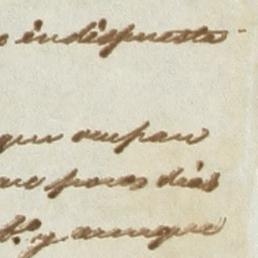 indispuesta
que ocupan
pocos dias
y aunque